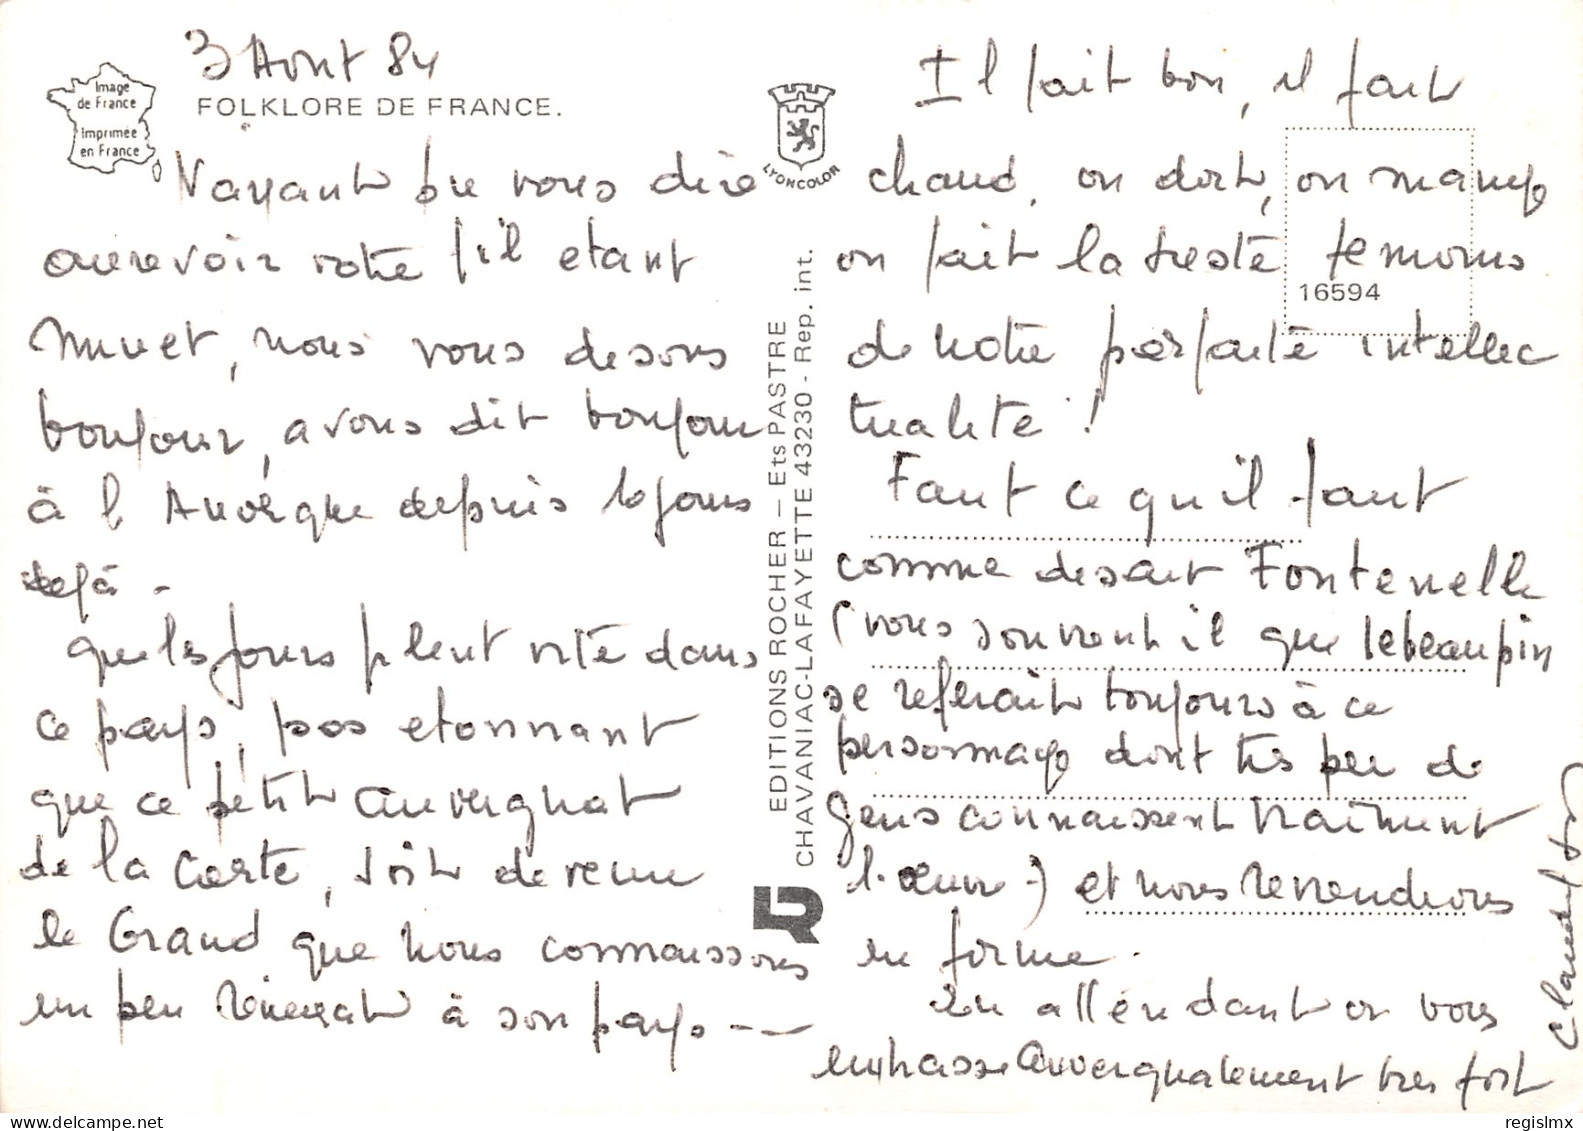 3 Aout 84
Image
de France
Imprimée
en France
FOLKLORE DE FRANCE.
N'ayant pu vous dire
aurevoir votre fil etant
muet, nous vous disons
bonjour, avons dit bonjour
à l'Auvergne depuis 10 jours
dejà -
que les jours filent vite dans
ce pays, pas etonnant
que ce petit auvergnat
de la Carte, soit devenu
le Grand que nous connaissons
un peu renierait à son pays ---
LYONCOLOR
EDITIONS ROCHER – Ets PASTRE
CHAVANIAC-LAFAYETTE 43230 - Rep. int.
Il fait bon, il fait
chaud, on dort, on mange
on fait la sieste temoins
16594
de notre parfaite intellec
tualite !
Faut ce qu'il faut
comme disait Fontenelle
(vous souvient il que lebeaupin
se referait toujours à ce
personnage dont très peu de
gens connaissent vraiment
l'œuvre -) et nous reviendrons
en forme.
En attendant on vous
embrasse Auvergnatement tres fort
regislmx